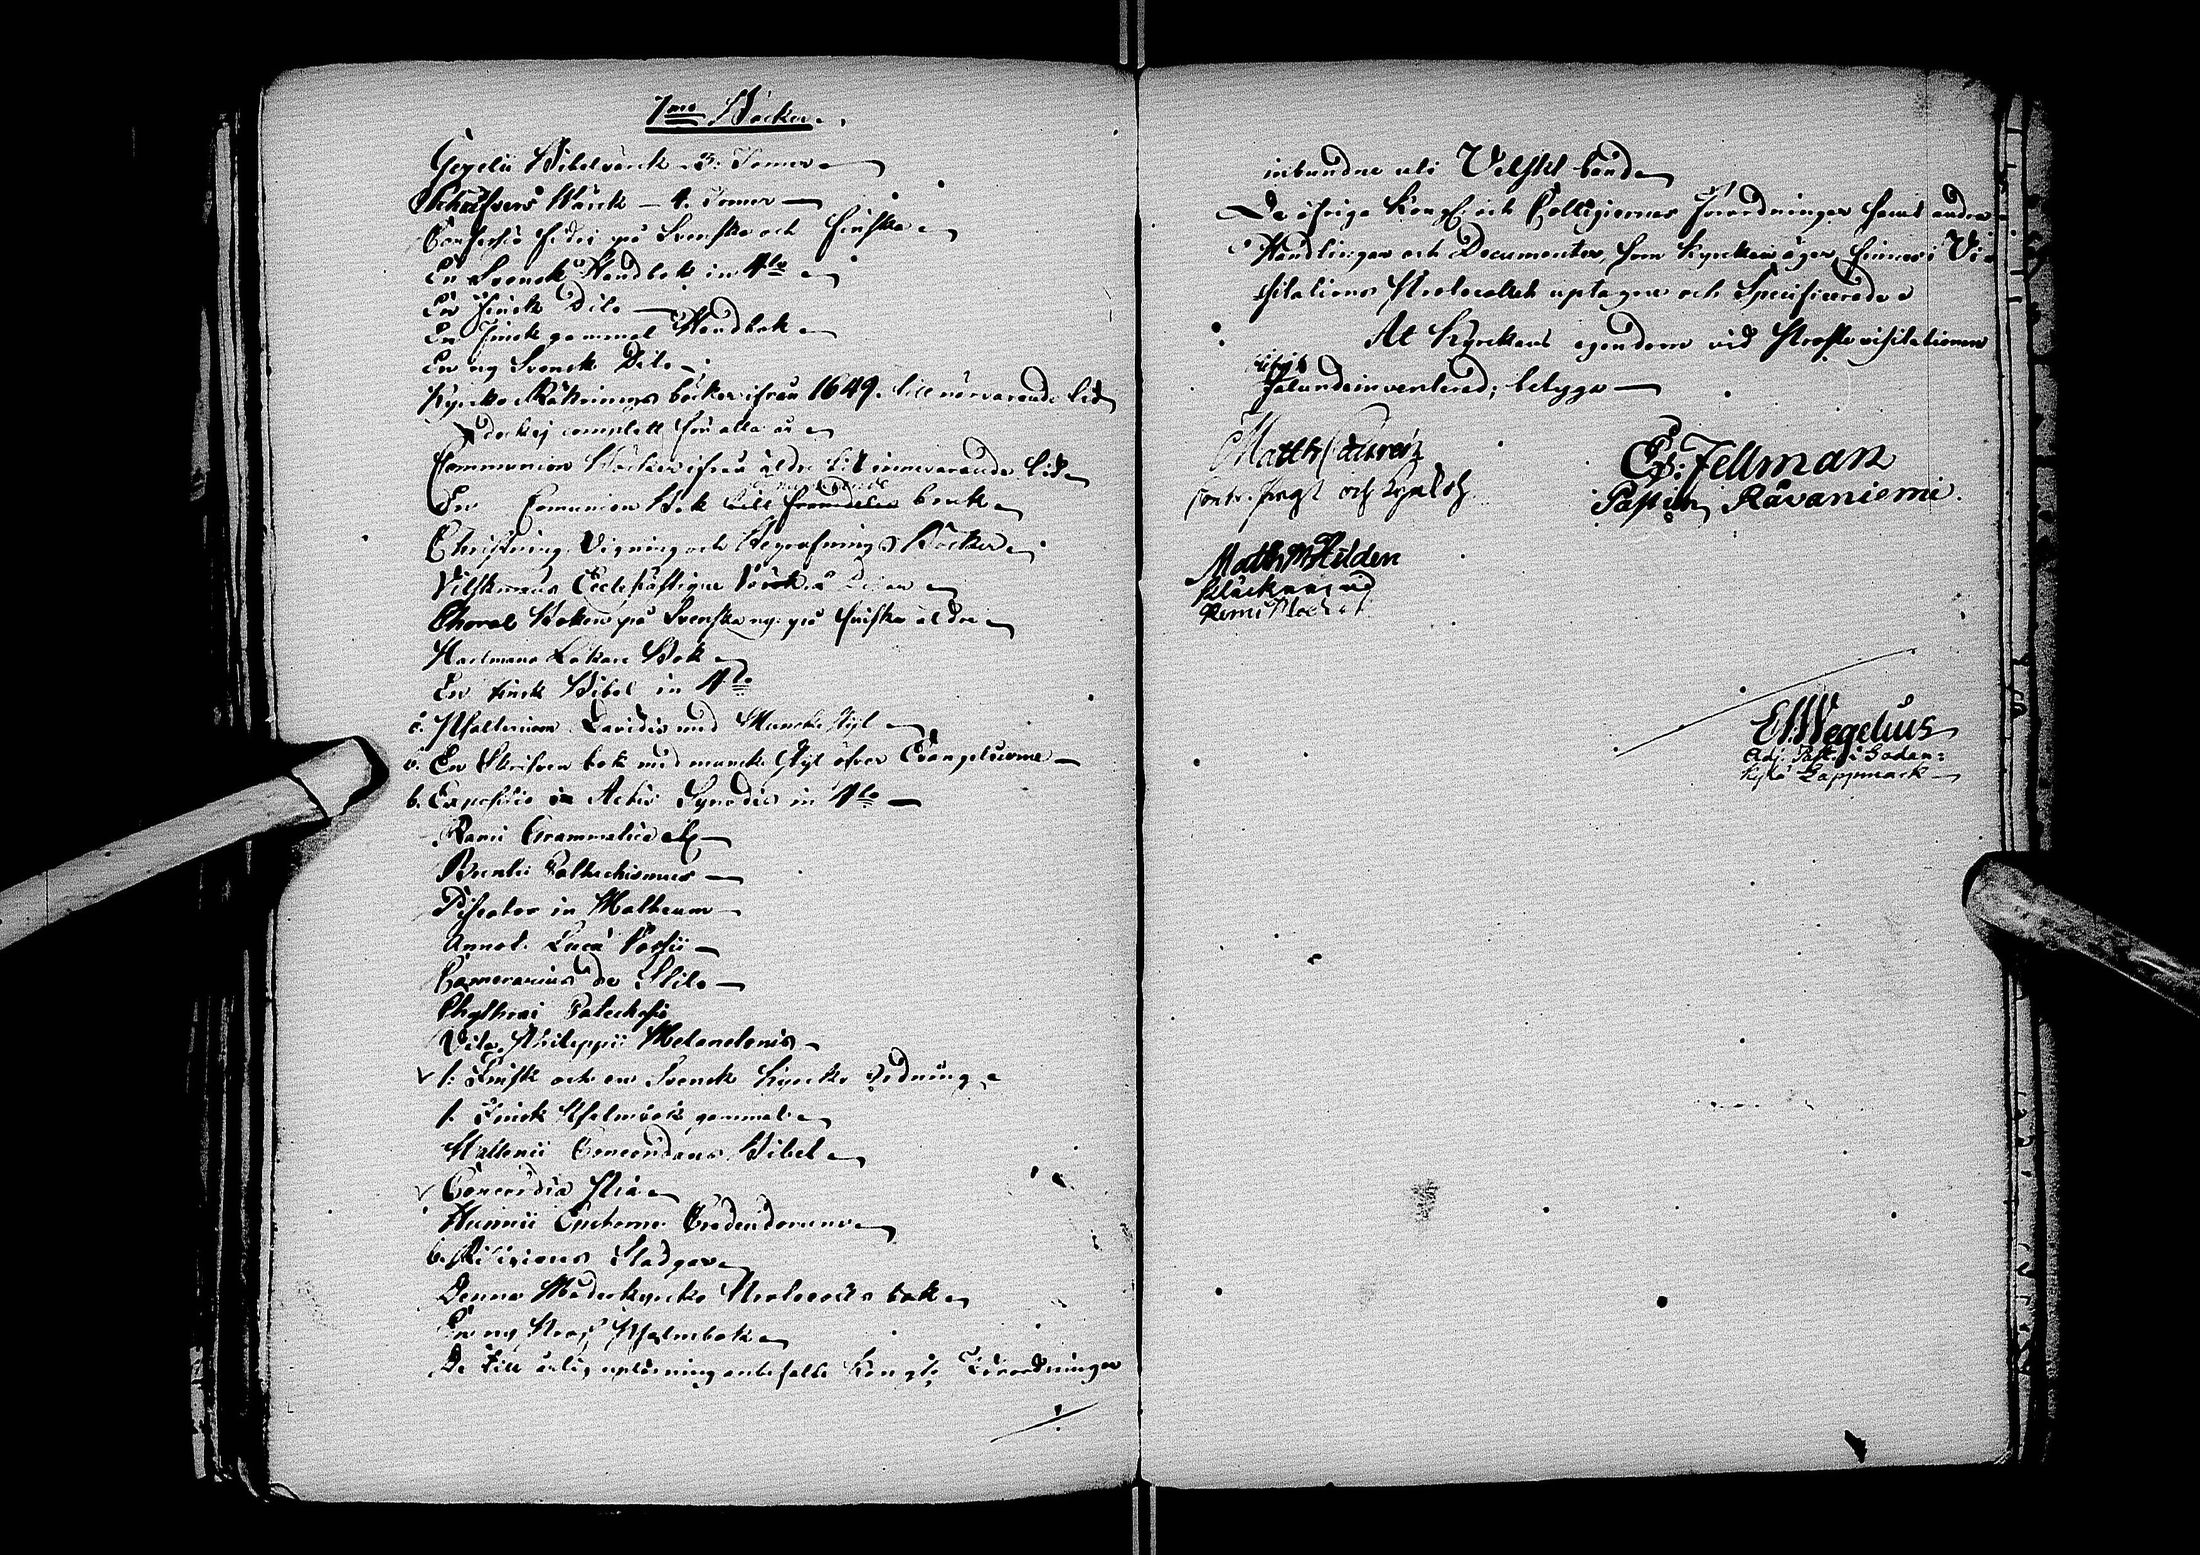 7mo Böcker.
Gezelii Bibelwärck 3. Tomer
Wärck – 4. Tomer –
Confessio fidei på Svenska och Finska
En Svensk Handbok in 4to
En Finsk Dito –
En Finsk gammal Handbok
En ny Svensk Dito –
Kyrcko Räknings böcker ifrån 1649. till närvarande tid
dock ej complett för alla år
Communion Böcker ifrån äldre tid innevarande tid
En Comunion Bok till bruk
Christnings Vigning och Begrafnings Böcker
Vilskmans Ecclesiastique Värck 2 Delar
Choral Boken på Svenska ny på Finska äldre
Hartmans Läkare Bok
En Finsk Bibel in 4to
c. Psalterium Davidis med Muncke styl
v. En Skrifven bok med muncke styl öfver Evangelierne –
b. Expositio in Actis Synodis in 4to –
Rami Grammatica etc –
Brentii Catechismus –
Piscator in Matheum –
Annot. Lucä Vossii –
Camerarius de Stilo –
Chythrai Catechesis
Vita Philippii Melanctonis –
v 1. Finsk och en Svensk Kyrcko ordning
1. Finsk Psalmbok gammal
Wallenii Concordans Bibel
v Concordia pia
Hunnii Epitome Credendorum
6. Religions Stadgar
Denna Moderkyrcko Protocolls bok
En ny Prof Psalmbok
De till årlig upläsning anbefalte Kongl. Förordningar
inbundne uti Velskt band
De öfriga Kongl. och Collegiernes Förordningar samt andre
Handlingar och Documenter, som Kyrckan äger, finnes i Vi-
sitations Protocollet uptagne och Specificerade
At Kyrckans egendom vid Proste visitationen
blifvit
sålunde inventerad; betyga –
Matth Lauræus
Contr. Prost och Kyrkoh.
Es: Fellman
Past: in Råvaniemi.
Matth M Hilden
Klåckare vid
Kemi Moderk.
E Wegelius
Adj. Past: i Sodan:
kylä Lappmark –